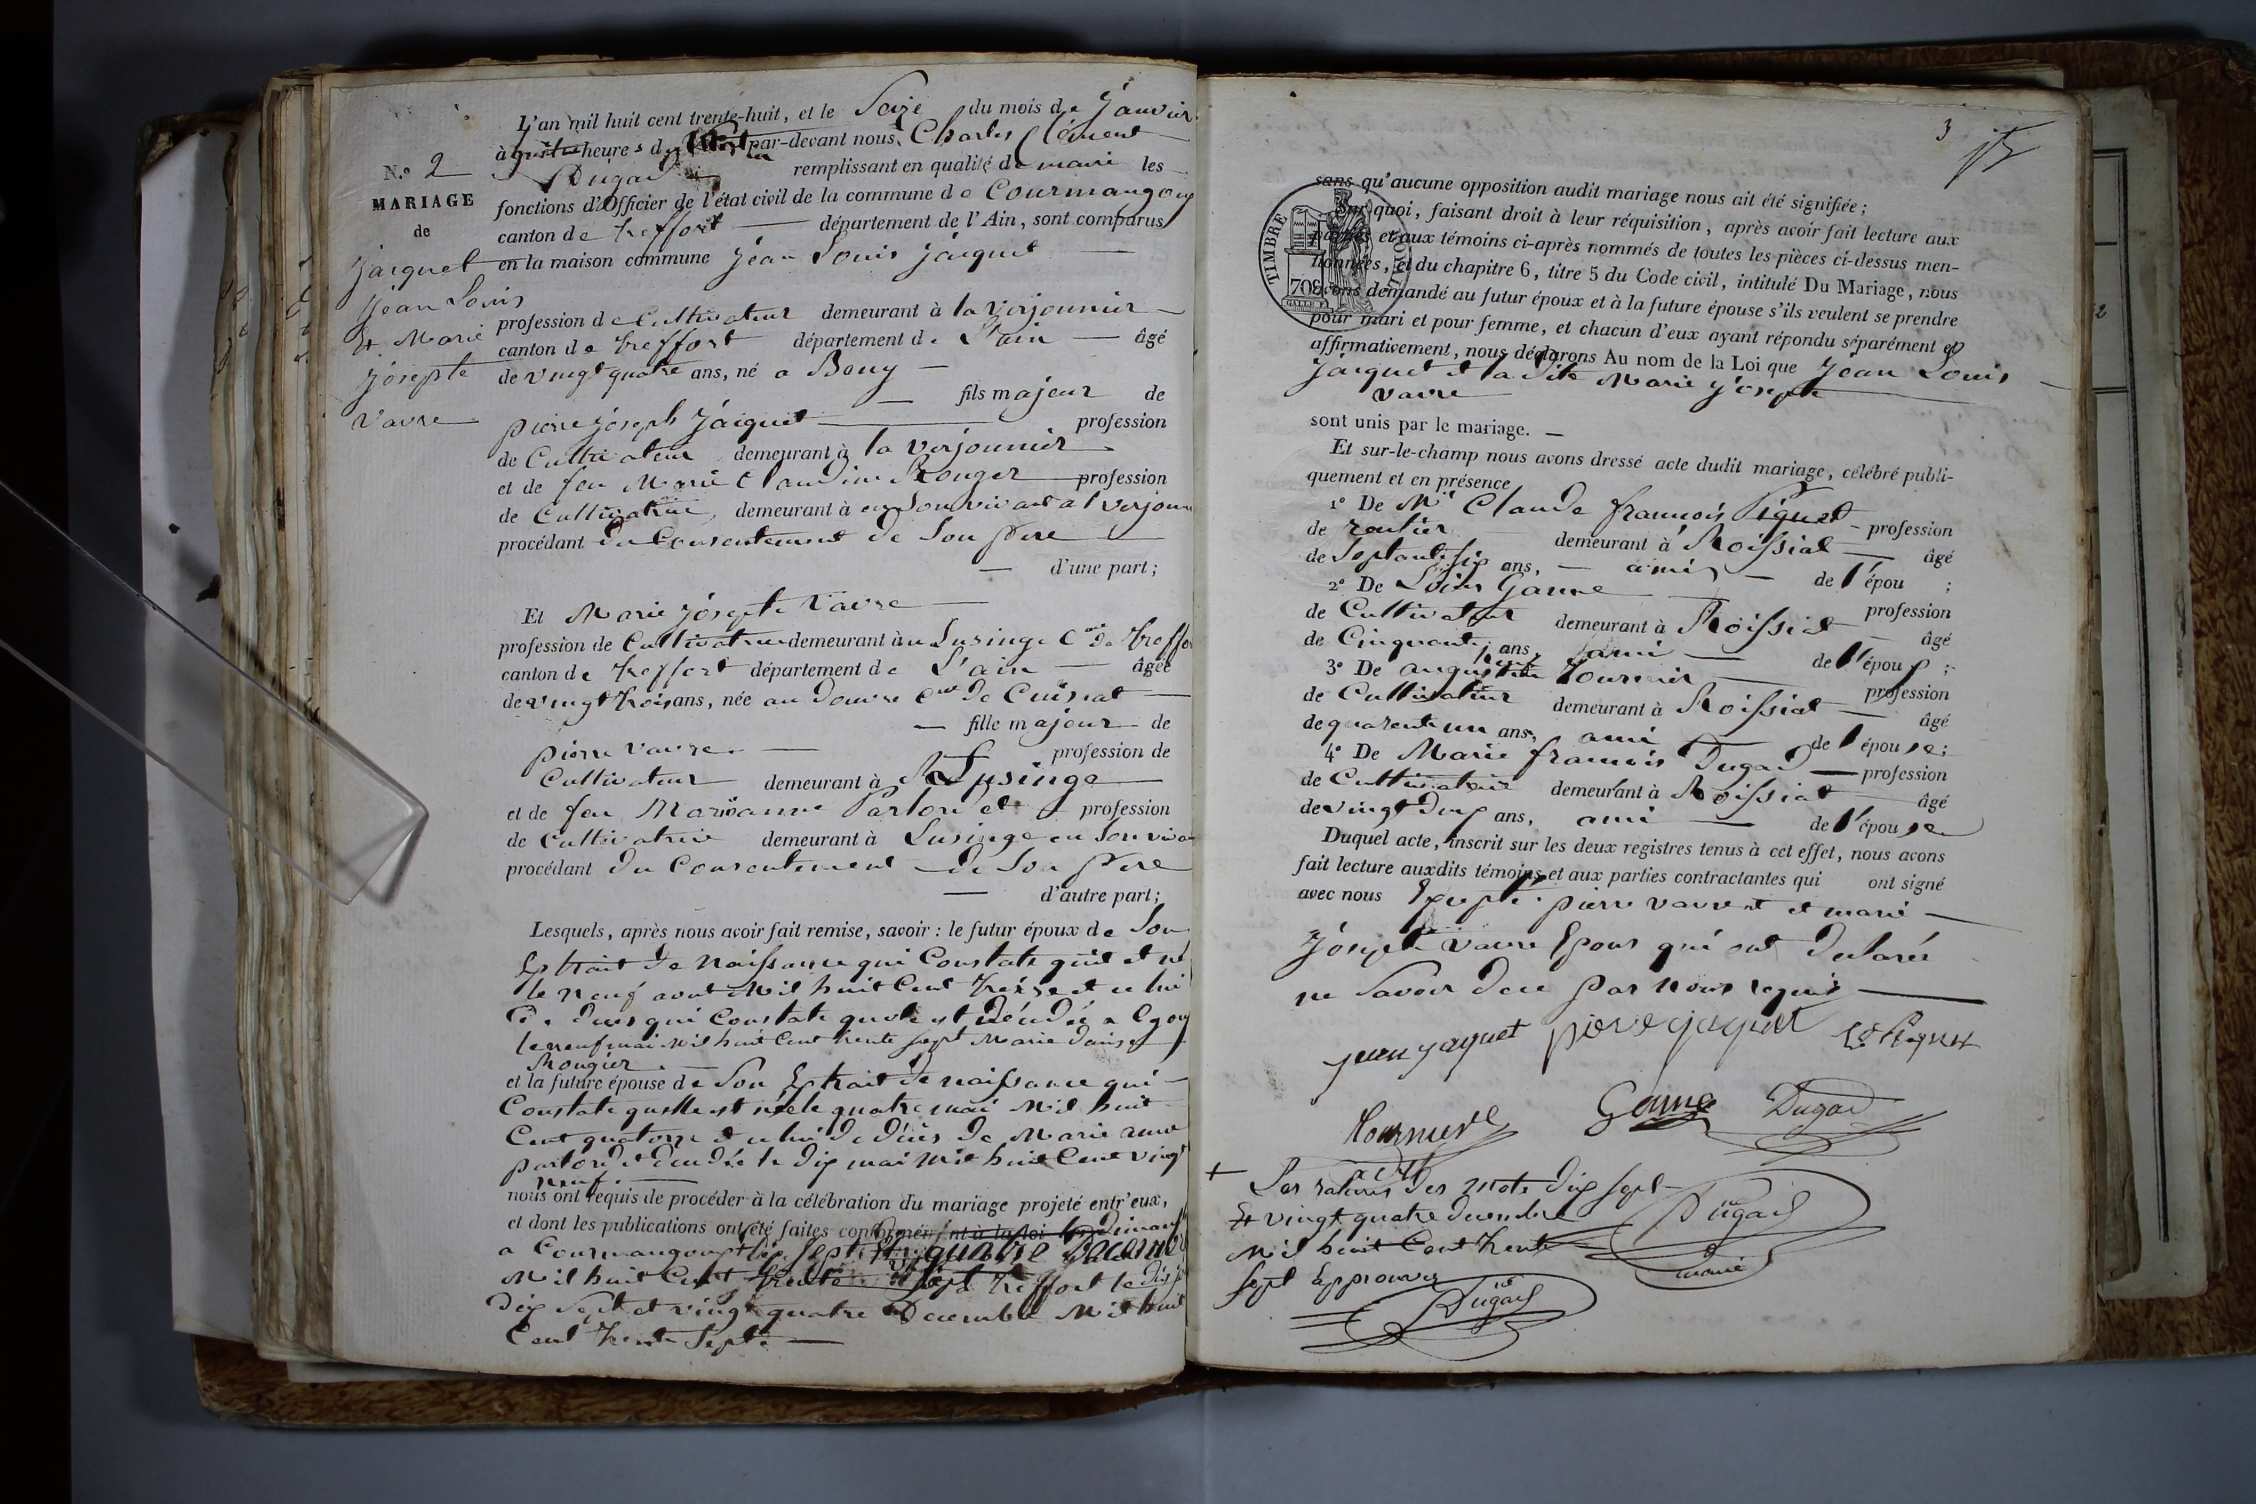 L'an mil huit cent trente-huit, et le Seize du mois de Janvier
à heures du par-devant nous, Charles Clément
Dugad remplissant en qualité de maire les
fonctions d'Officier de l'état civil de la commune de Courmangoux
canton de treffort département de l'Ain, sont comparus
en la maison commune Jéan Louis Jacquet
profession de Cultivateur demeurant à la verjonnier
canton de treffort département de L'ain âgé
de vingt quatre ans, né a Beny
fils majeur de
pierre Joseph Jacquet profession
de Cultivateur demeurant à la verjonnier
et de feu Marie Claudine Rouger profession
de Cultivatrice, demeurant à en Son vivant a l verjonn
procédant du Consentement de Son père
d'une part;
N.º 2
MARIAGE
de
Jacquet
Jean Louis
et Marie
Josephte
Vavre
Et Marie Josephte Vavre
profession de Cultivatrice demeurant à Lusinge Cne de treffo
canton de treffort département de L'ain âgée
de vingt trois ans, née au douvre Cne de Cuisiat
fille majeur de
pierre vavre profession de
Cultivateur demeurant à Lusinge
et de feu Marianne profession
de Cultivatrice demeurant à Lusinge en Son viva
procédant du Consentement de Son père
d'autre part;
Lesquels, après nous avoir fait remise, savoir : le futur époux de Son
Extrait de Naissance qui Constate quil et né
le Neuf avout Mil huit Cent treize et celui
de duès qui Constate quele est Déudée a
le neuf mai Mil huit Cent trente sept Marie
Rougier
et la future épouse de Son Extrait de naissance qui
Constate quelle est née le quatre mai Mil huit
Cent quatorze et celui de déuès de Marie anne
et déudée le dix mai Mil huit Cent vingt
neuf
nous ont requis de procéder à la célébration du mariage projeté entr'eux,
et dont les publications ont été faites conformément à la loi
a Courmangoux dix Sept et vingt quatre Décembre
Mil huit Cent trente et Sept treffort le
dix Sept et vingt quatre Décembre Mil huit
Cent trente Sept
3
TIMBRE
ROYAL
70c
sans qu'aucune opposition audit mariage nous ait été signifiée;
Sur quoi, faisant droit à leur réquisition, après avoir fait lecture aux
parties et aux témoins ci-après nommés de toutes les pièces ci-dessus men-
tionnées, et du chapitre 6, titre 5 du Code civil, intitulé Du Mariage, nous
avons demandé au futur époux et à la future épouse s'ils veulent se prendre
pour mari et pour femme, et chacun d'eux ayant répondu séparément et
affirmativement, nous déclarons Au nom de la Loi que Jean Louis
Jacquet et la dite Marie Josephe
vavre
sont unis par le mariage.
Et sur-le-champ nous avons dressé acte dudit mariage, célébré publi-
quement et en présence
1º De Mr Claude francois Piquet profession
de rentier demeurant à Roissiat âgé
de Septante six ans, ami de l'épou ;
2º De Louis Ganne profession
de Cultivateur demeurant à Roissiat âgé
de Cinquante ans, ami de l'époux ;
3º De augustin tournier profession
de Cultivateur demeurant à Roissiat âgé
de quarente un ans, ami de l'épouse;
4º De Marie francois Dugad profession
de Cultivateur demeurant à Roissiat âgé
de vingt deux ans, ami de l'épouse
Duquel acte, inscrit sur les deux registres tenus à cet effet, nous avons
fait lecture auxdits témoins et aux parties contractantes qui ont signé
avec nous Excepté pierre vavre et marie
Josephte vavre Epous qui ont declarés
ne Savoir de ce par Nous requis
jean jaquet pierre jaquet Piquet
tournier Ganne Dugad
+ Les ratures des mots dix sept
Et vingt quatre decembre
Mil huit Cent trente
Sept Approuvés
Dugad
maire
Dugad